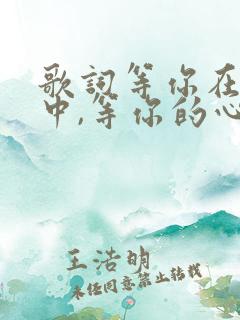 歌词等你在
中,等你的心
王浩明
未经同意禁止转载